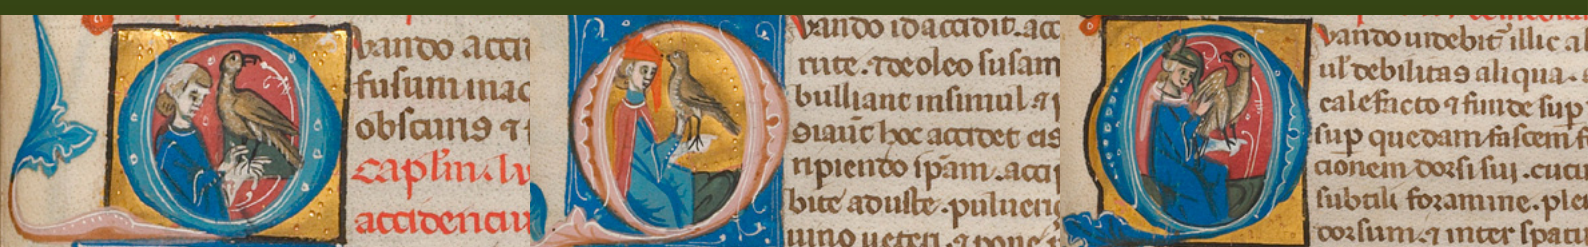 Quando acci
fusum inac
obscuris ⁊
caplm. lv
accidenciu
Quando id accidit. acc
rute. ⁊ de oleo susam
bulliant insimul. ⁊
Siaut hoc accidet eis
ripiendo ipam. acci
bite aduste. pulueri
uino ueteri. ⁊ pone
Quando uidebit illic al
ul' debilitas aliqua.
calefacto ⁊ funde sup
sup quedam fascem
cionem dorsi sui.
subtili foramine. ple
dorsum. ⁊ inter spaciu